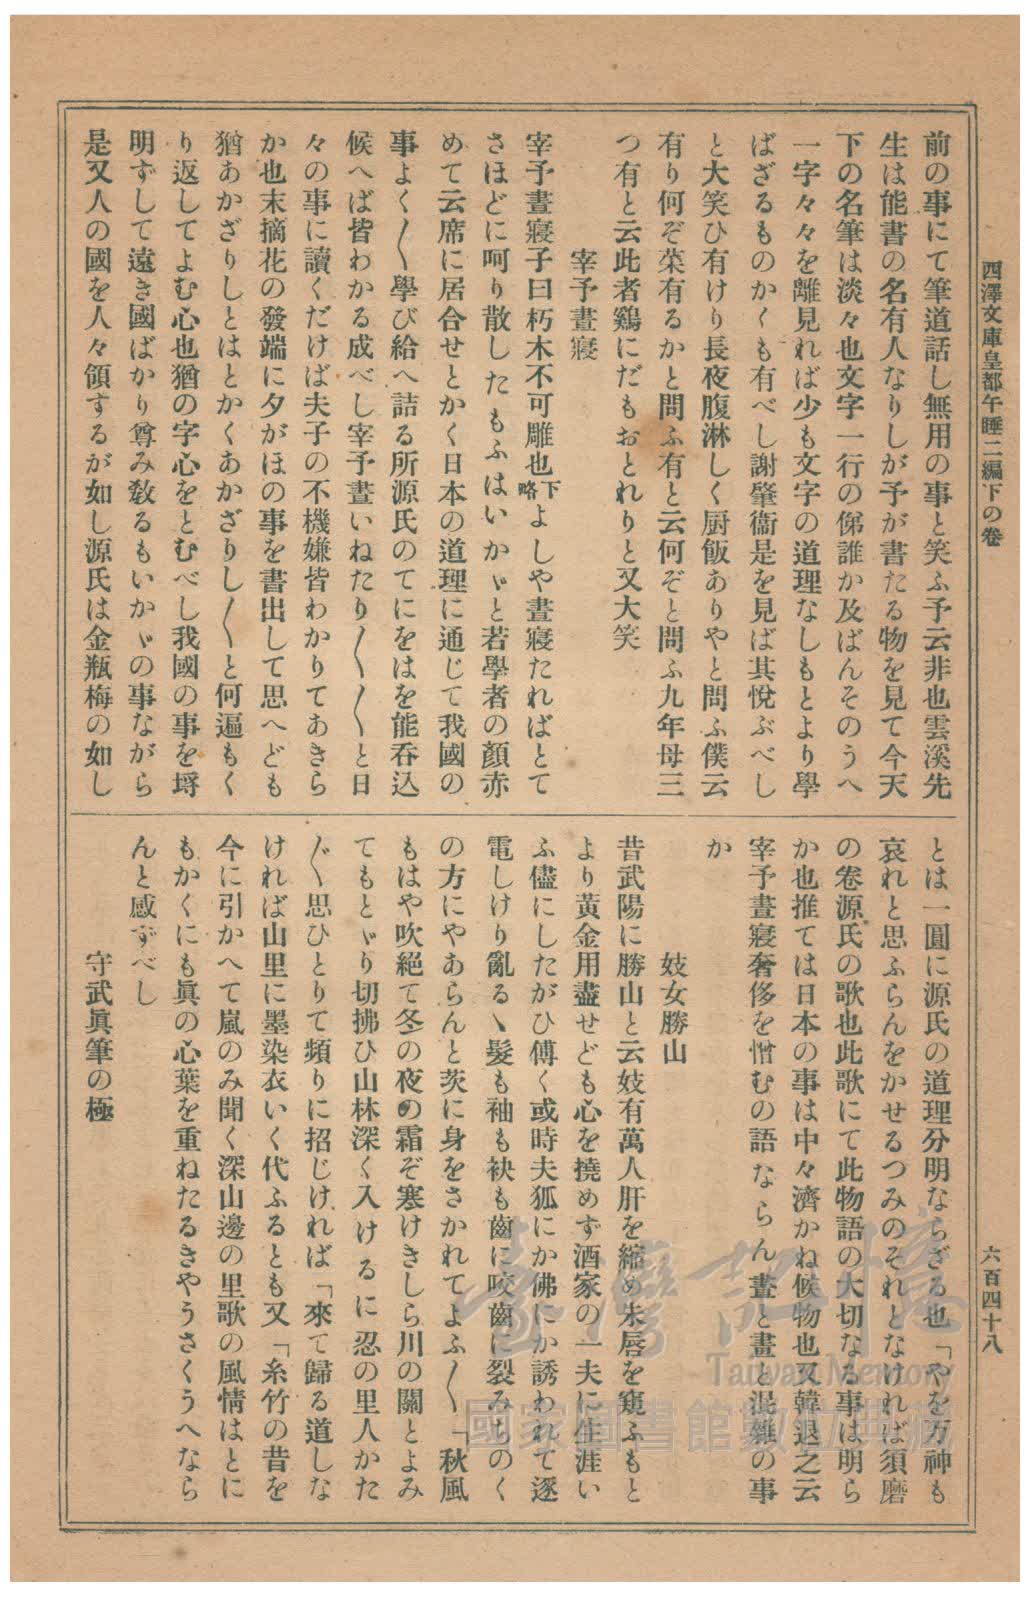 西澤文庫皇都午睡二編下の卷
六百四十八
前の事にて筆道話し無用の事と笑ふ予云非也雲溪先
生は能書の名有人なりしが予が書たる物を見て今天
下の名筆は淡々也文字一行の俤誰か及ばんそのうへ
一字々々を離見れば少も文字の道理なしもとより學
ばざるものかくも有べし謝肇淛是を見ば其悅ぶべし
と大笑ひ有けり長夜腹淋しく厨飯ありやと問ふ僕云
有り何ぞ菜有るかと問ふ有と云何ぞと問ふ九年母三
つ有と云此者鷄にだもおとれりと又大笑
宰予晝寢
宰予晝寢子曰朽木不可雕也下略よしや晝寢たればとて
さほどに呵り散したもふはいかゞと若學者の顏赤
めて云席に居合せとかく日本の道理に通じて我國の
事よく〳〵學び給へ詰る所源氏のてにをはを能呑込
候へば皆わかる成べし宰予晝いねたり〳〵〳〵と日
々の事に讀くだけば夫子の不機嫌皆わかりてあきら
か也末摘花の發端に夕がほの事を書出して思へども
猶あかざりしとはとかくあかざりし〳〵と何遍もく
り返してよむ心也猶の字心をとむべし我國の事を埒
明ずして遠き國ばかり尊み敎るもいかゞの事ながら
是又人の國を人々領するが如し源氏は金瓶梅の如し
とは一圓に源氏の道理分明ならざる也「やを万神も
哀れと思ふらんをかせるつみのそれとなければ須磨
の卷源氏の歌也此歌にて此物語の大切なる事は明ら
か也推ては日本の事は中々濟かね候物也又韓退之云
宰予晝寢奢侈を憎むの語ならん晝と畫と混雜の事
か
妓女勝山
昔武陽に勝山と云妓有萬人肝を縮め朱唇を窺ふもと
より黃金用盡せども心を撓めず酒家の一夫に生涯い
ふ儘にしたがひ傅く或時夫狐にか佛にか誘われて逐
電しけり亂るゝ髮も袖も袂も齒に咬齒に裂みちのく
の方にやあらんと茨に身をさかれてよふ〳〵「秋風
もはや吹絕て冬の夜の霜ぞ寒けきしら川の關とよみ
てもとゞり切拂ひ山林深く入けるに忍の里人かた
〴〵思ひとりて頻りに招じければ「來て歸る道しな
ければ山里に墨染衣いく代ふるとも又「糸竹の昔を
今に引かへて嵐のみ聞く深山邊の里歌の風情はとに
もかくにも眞の心葉を重ねたるきやうさくうへなら
んと感ずべし
守武眞筆の極
臺灣記憶
Taiwan Memory
國家圖書館數位典藏